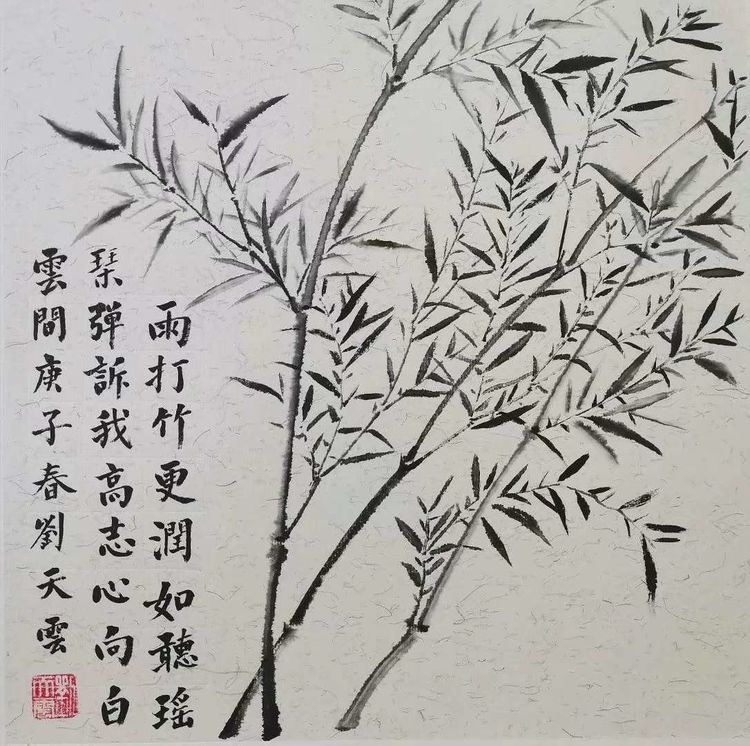 雨打竹更潤如聽瑤
琹彈訴我高志心向白
雲間庚子春劉天雲